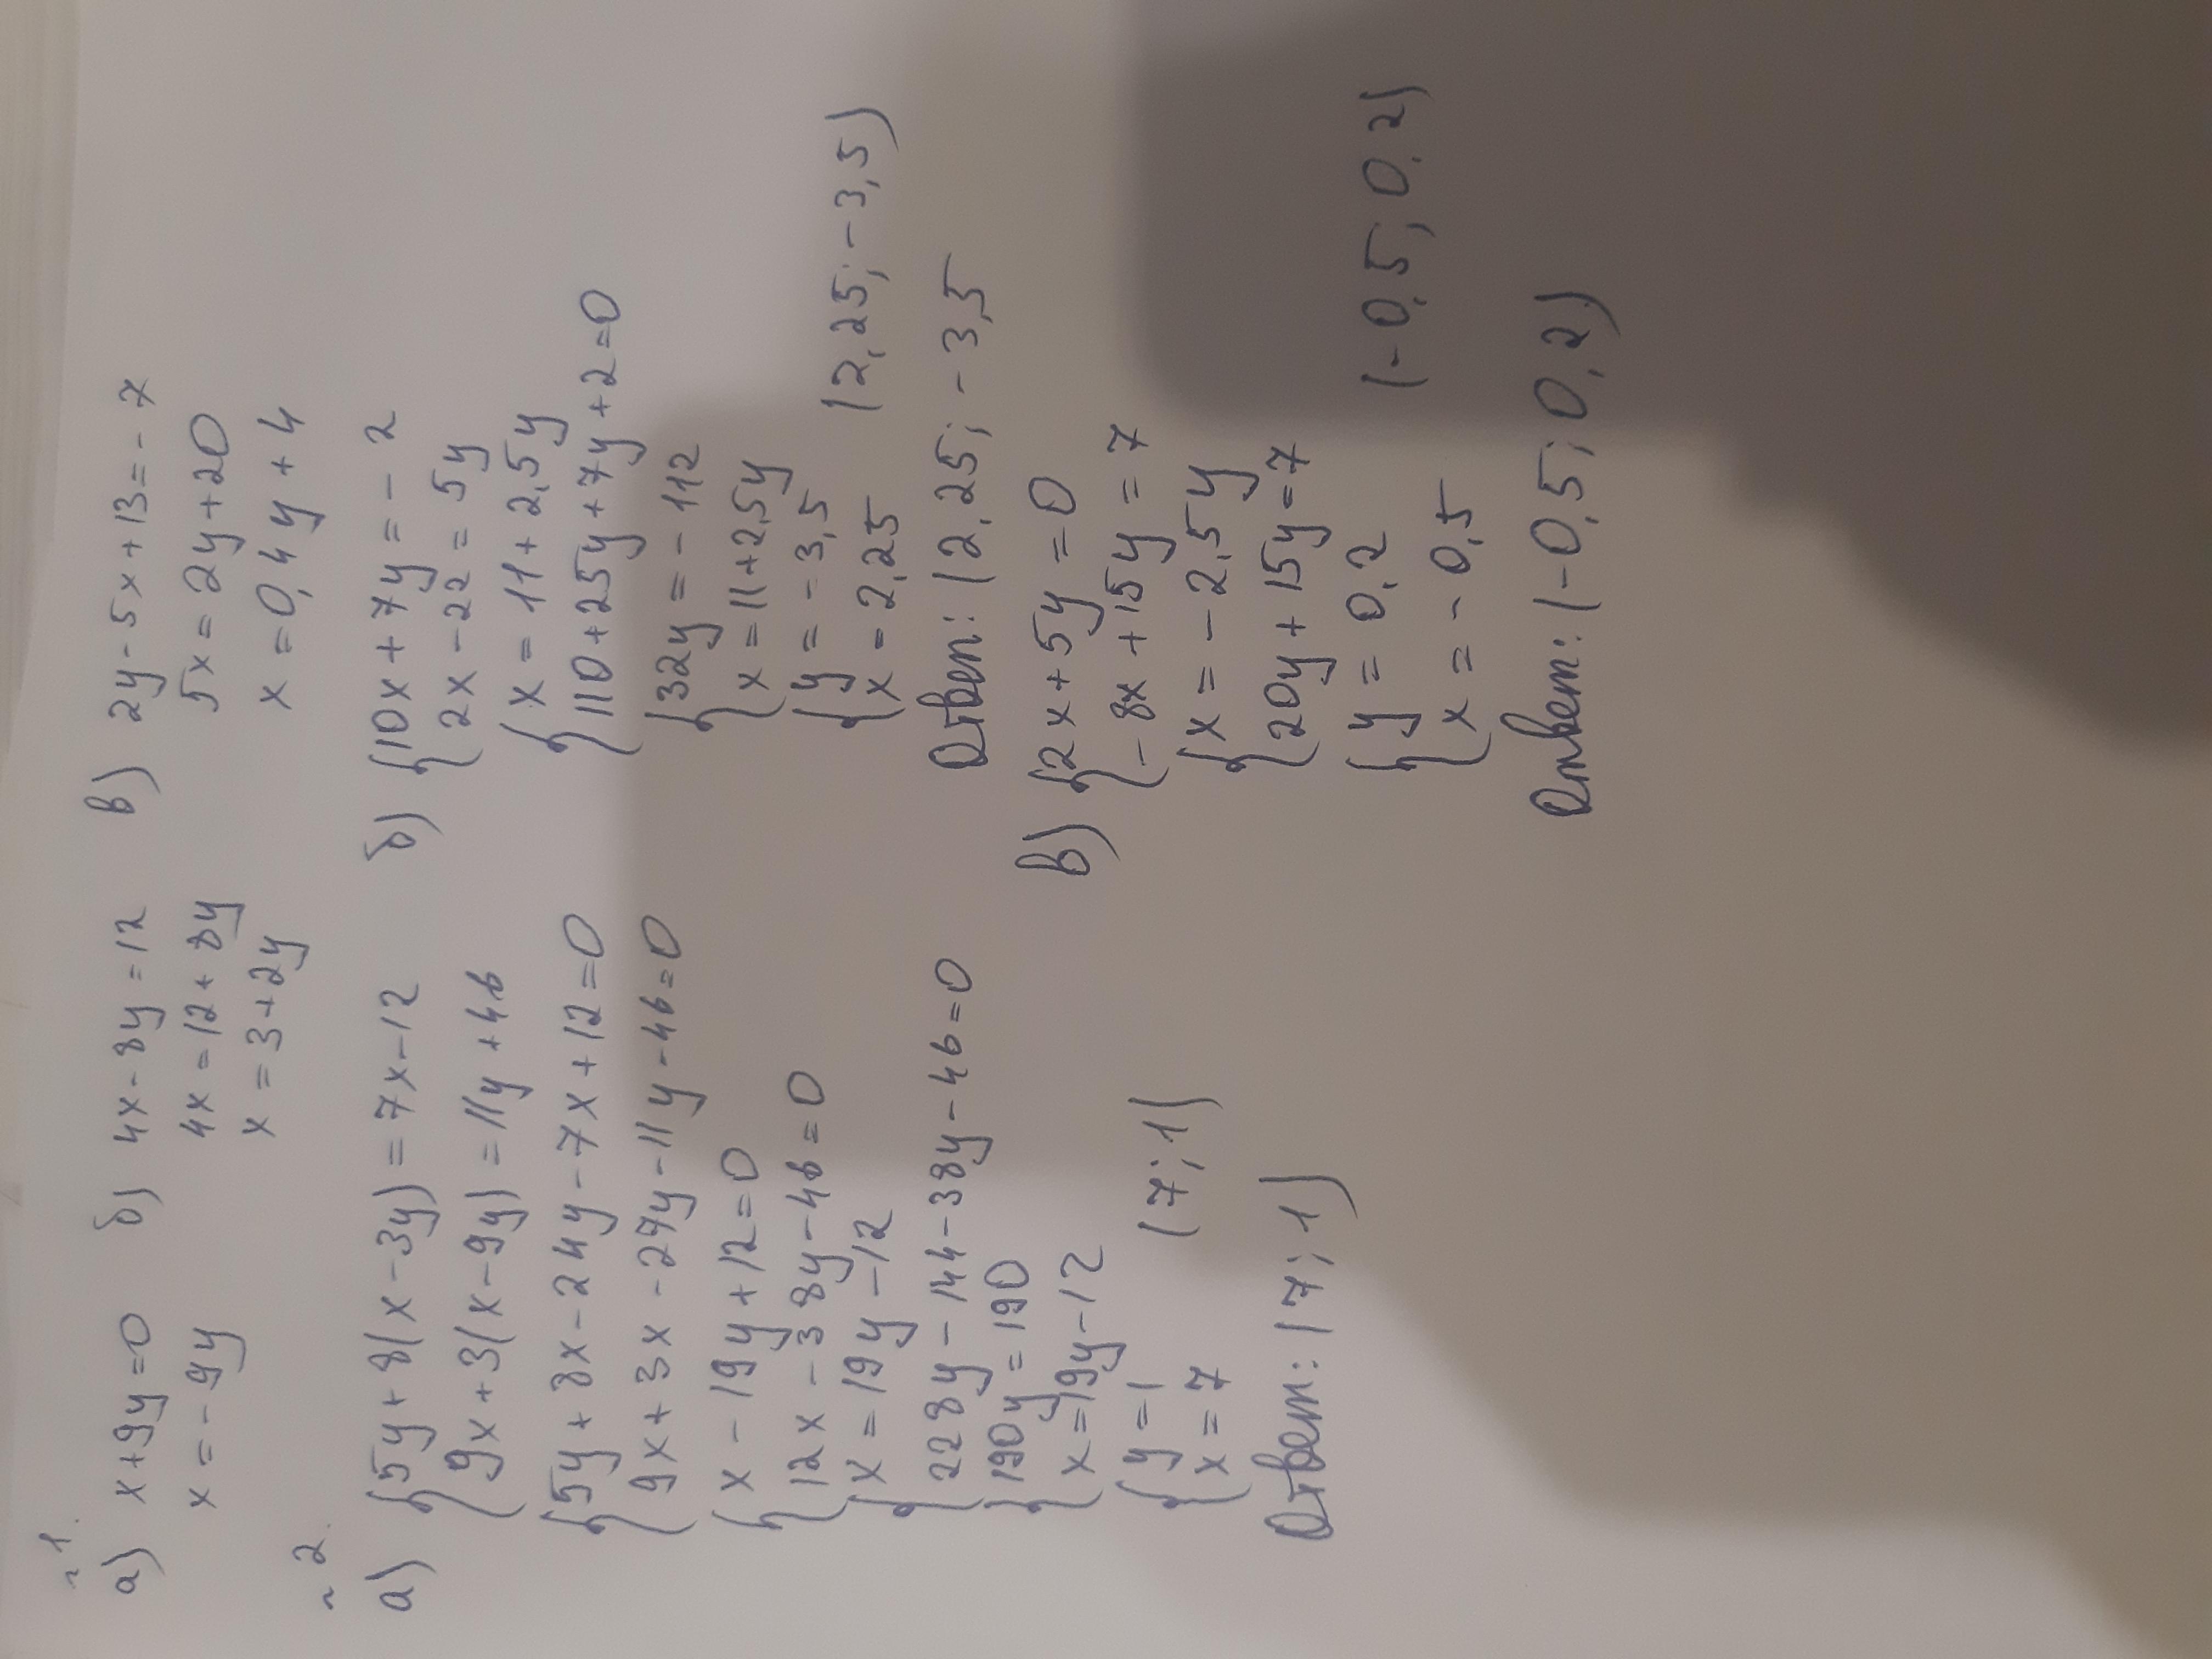 ~ 1.
а) x+9y=0
x = - 9y
б) 4x-8y=12
4x=12+8y
x = 3+2y
в) 2y-5x+13=-7
5x = 2y+20
x = 0,4y+4
~ 2.
а) {5y+8(x-3y)=7x-12
9x+3(x-9y)=11y+46
{5y+8x-24y-7x+12=0
9x+3x-27y-11y-46=0
{x-19y+12=0
12x-38y-46=0
{x=19y-12
228y-144-38y-46=0
{190y=190
x=19y-12
{y=1
x=7 (7;1)
Ответ: (7;1)
б) {10x+7y=-2
2x-22=5y
{x=11+2,5y
110+25y+7y+2=0
{32y=-112
x=11+2,5y
{y=-3,5
x=2,25 (2,25;-3,5)
Ответ: (2,25;-3,5
в) {2x+5y=0
-8x+15y=7
{x=-2,5y
20y+15y=7
{y=0,2
x=-0,5 (-0,5;0,2)
Ответ: (-0,5;0,2)